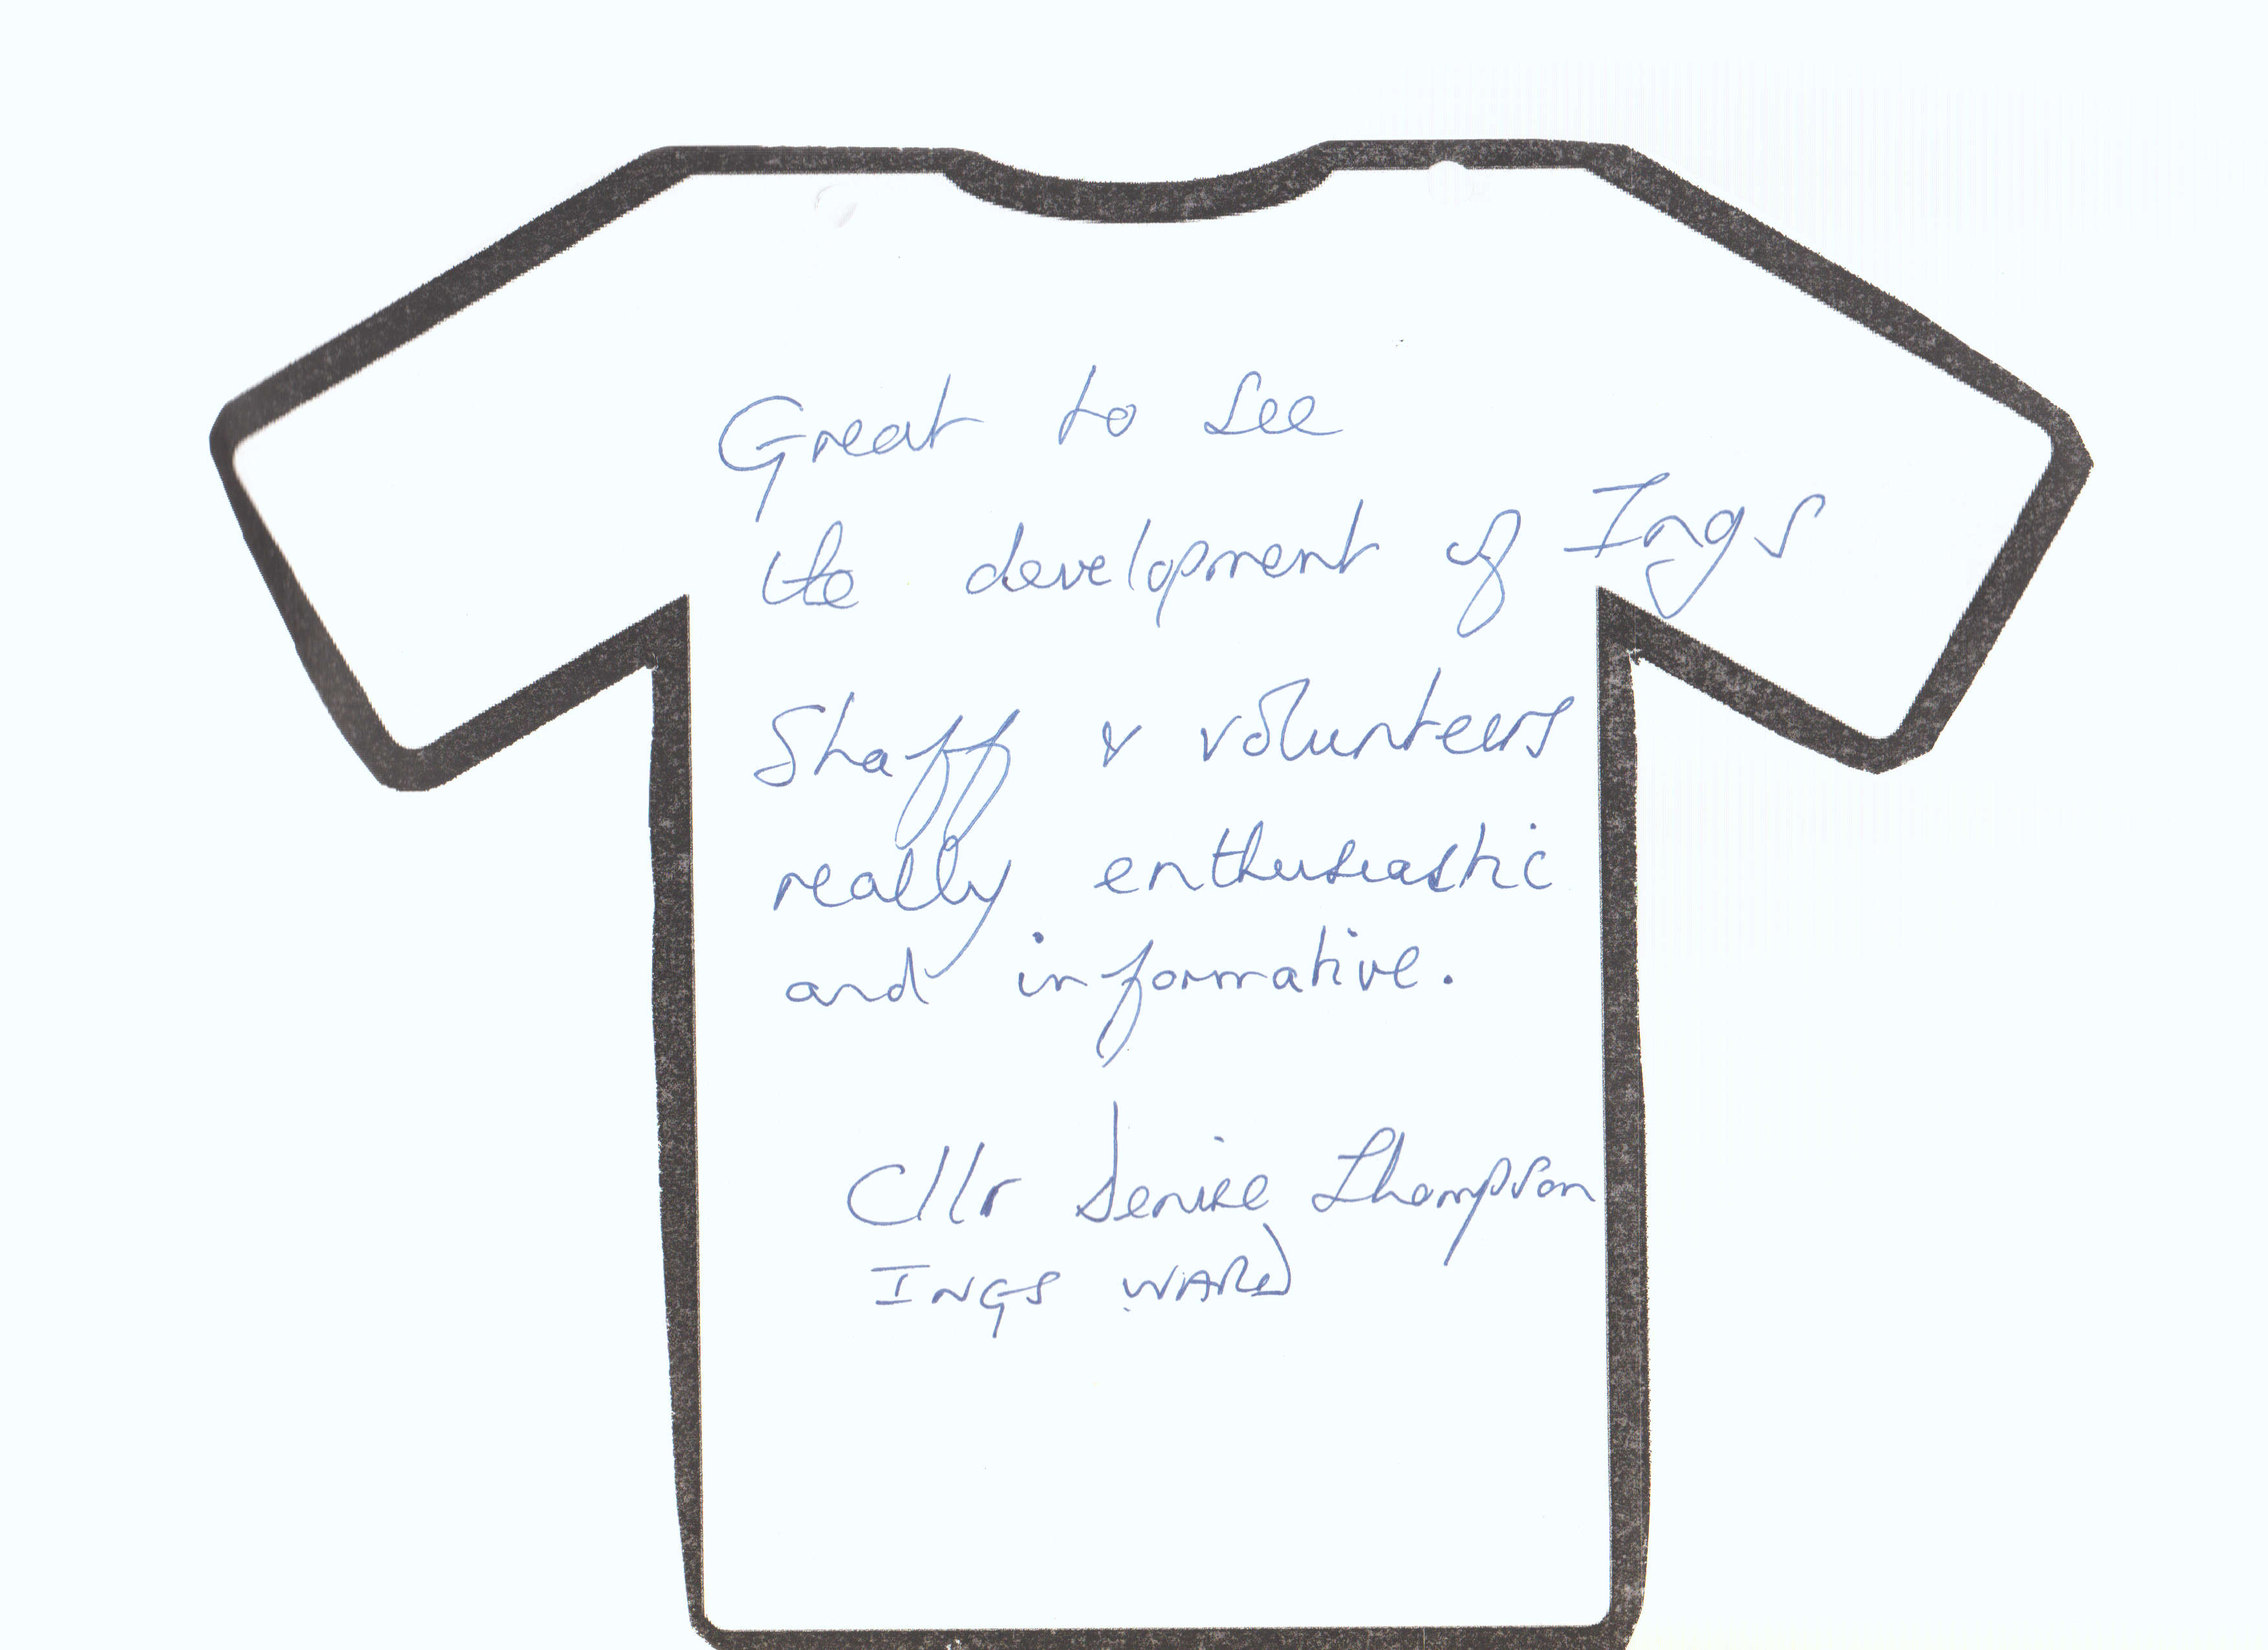 Great to see
the development of Ings
Staff & volunteers
really enthusiastic
and informative.
Cllr Denise Thompson
INGS WARD